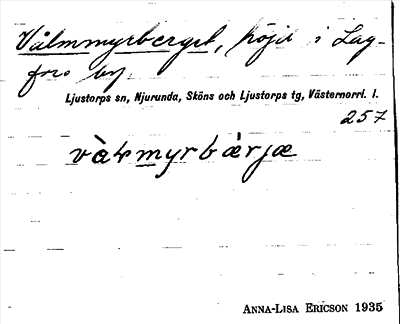 Vålmmyrberget, höjd i Lag-
fors by.
Ljustorps sn, Njurunda, Sköns och Ljustorps tg, Västernorrl. l.
257
vàɫmyrbærjæ
ANNA-LISA ERICSON 1935